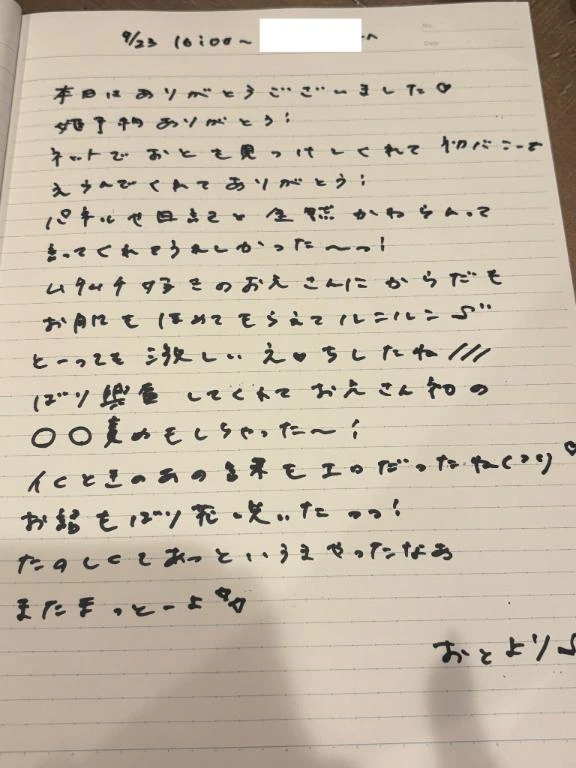 9/23 16:00～ へ
No.
Date
本日はありがとうございました♡
姫予約ありがとう!
ネットでおとを見つけてくれて初バニーで
えらんでくれてありがとう!
パネルや日記と全然かわらんって
言ってくれてうれしかった～っ!
ムチムチ好きのおえさんにからだも
お顔もほめてもらえてルンルン♪"
とーっても激しいえ♥ちしたね///
ばり興奮してくれておえさん初の
〇〇責めもしちゃった～!
イくときのあの音もエロだったね( )♡
お話もばり花咲いたっっ!
たのしくてあっというまやったなぁ
またまっとーよ
おとより♪